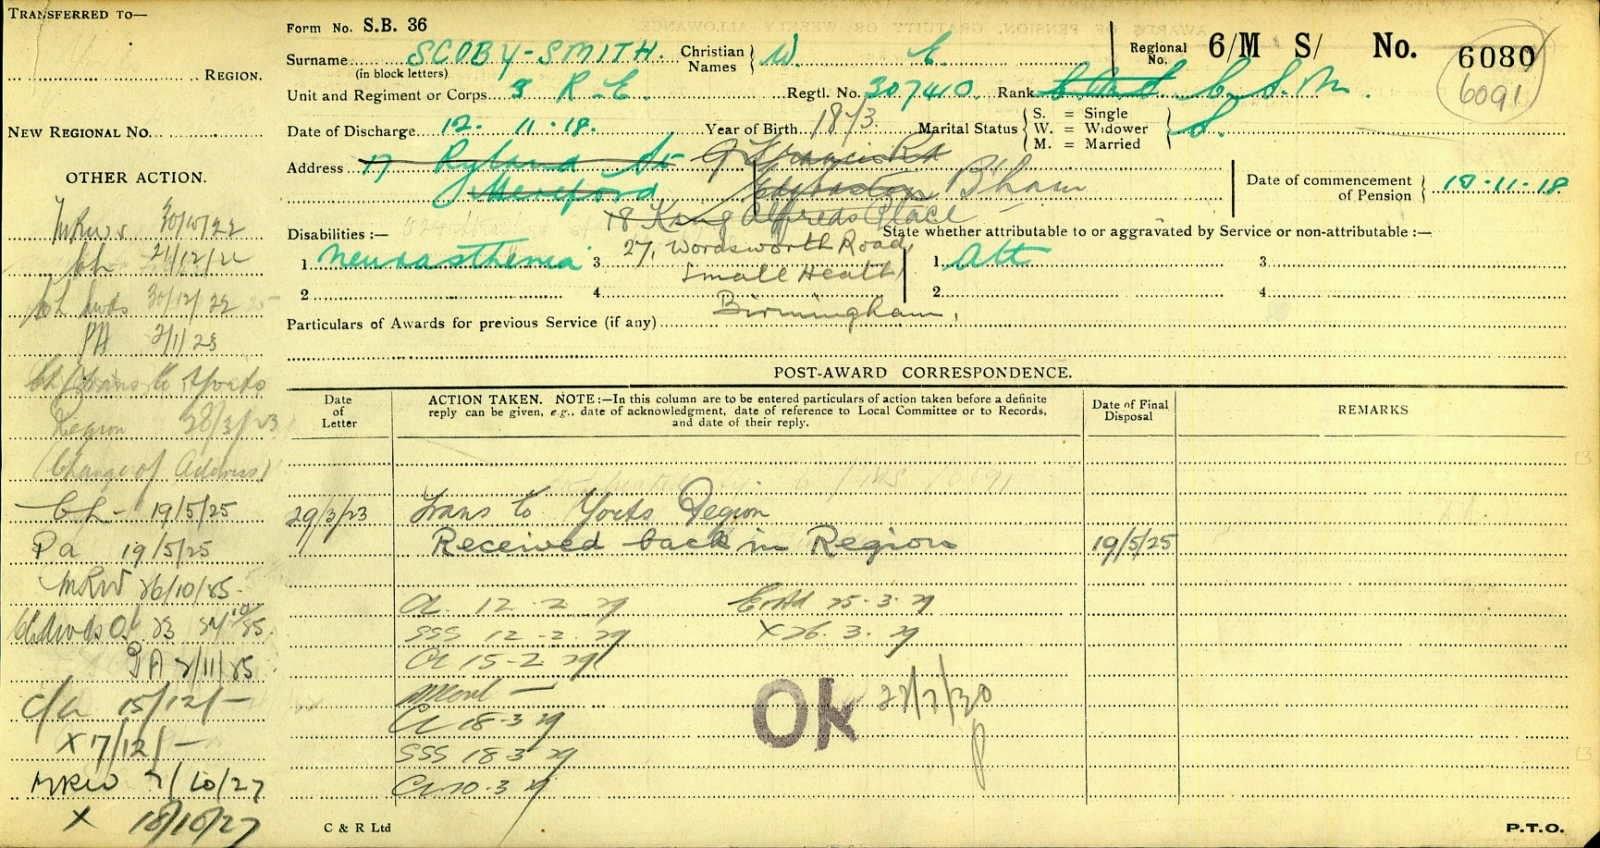 TRANSFERRED TO—
REGION.
NEW REGIONAL No.
OTHER ACTION.
30/10/22
Ch 21/12/22
30/12/22
PA 2/1/23
Trans to Yorks
Region 28/3/23
(Change of Address)
Ch - 19/5/25
Pa 19/5/25
MRW 26/10/25
PA 2/11/25
C/A 15/12/-
X 7/12/-
MRW 7/10/27
X 18/10/27
Form No. S.B. 36
Surname SCOBY-SMITH. Christian Names W. E. Regional No. 6/M S/ No. 6080
(in block letters)
6091
Unit and Regiment or Corps 3 R.E. Regtl. No. 307410 Rank C.S.M.
Date of Discharge 12.11.18. Year of Birth 1873. Marital Status S. = Single S.
W. = Widower
M. = Married
Address 17 Ryland St 9 Francis Rd
Hereford Edgbaston B'ham
Date of commencement of Pension 13.11.18
18 King Alfreds Place
Disabilities :— State whether attributable to or aggravated by Service or non-attributable :—
1 Neurasthenia 3 27, Wordsworth Road, 1 Att 3
Small Heath
2 4 2 4
Birmingham.
Particulars of Awards for previous Service (if any)
POST-AWARD CORRESPONDENCE.
Date of Letter
ACTION TAKEN. NOTE:—In this column are to be entered particulars of action taken before a definite
reply can be given, e.g., date of acknowledgment, date of reference to Local Committee or to Records,
and date of their reply.
Date of Final Disposal
REMARKS
29/3/23 Trans to Yorks Region
Received back in Region 19/5/25
CL 12-2-29 25-3-29
SSS 12-2-29 X 26.3.29
CL 15-2-29
Ok
CL 18-3-29
SSS 18-3-29
C & R Ltd
P.T.O.